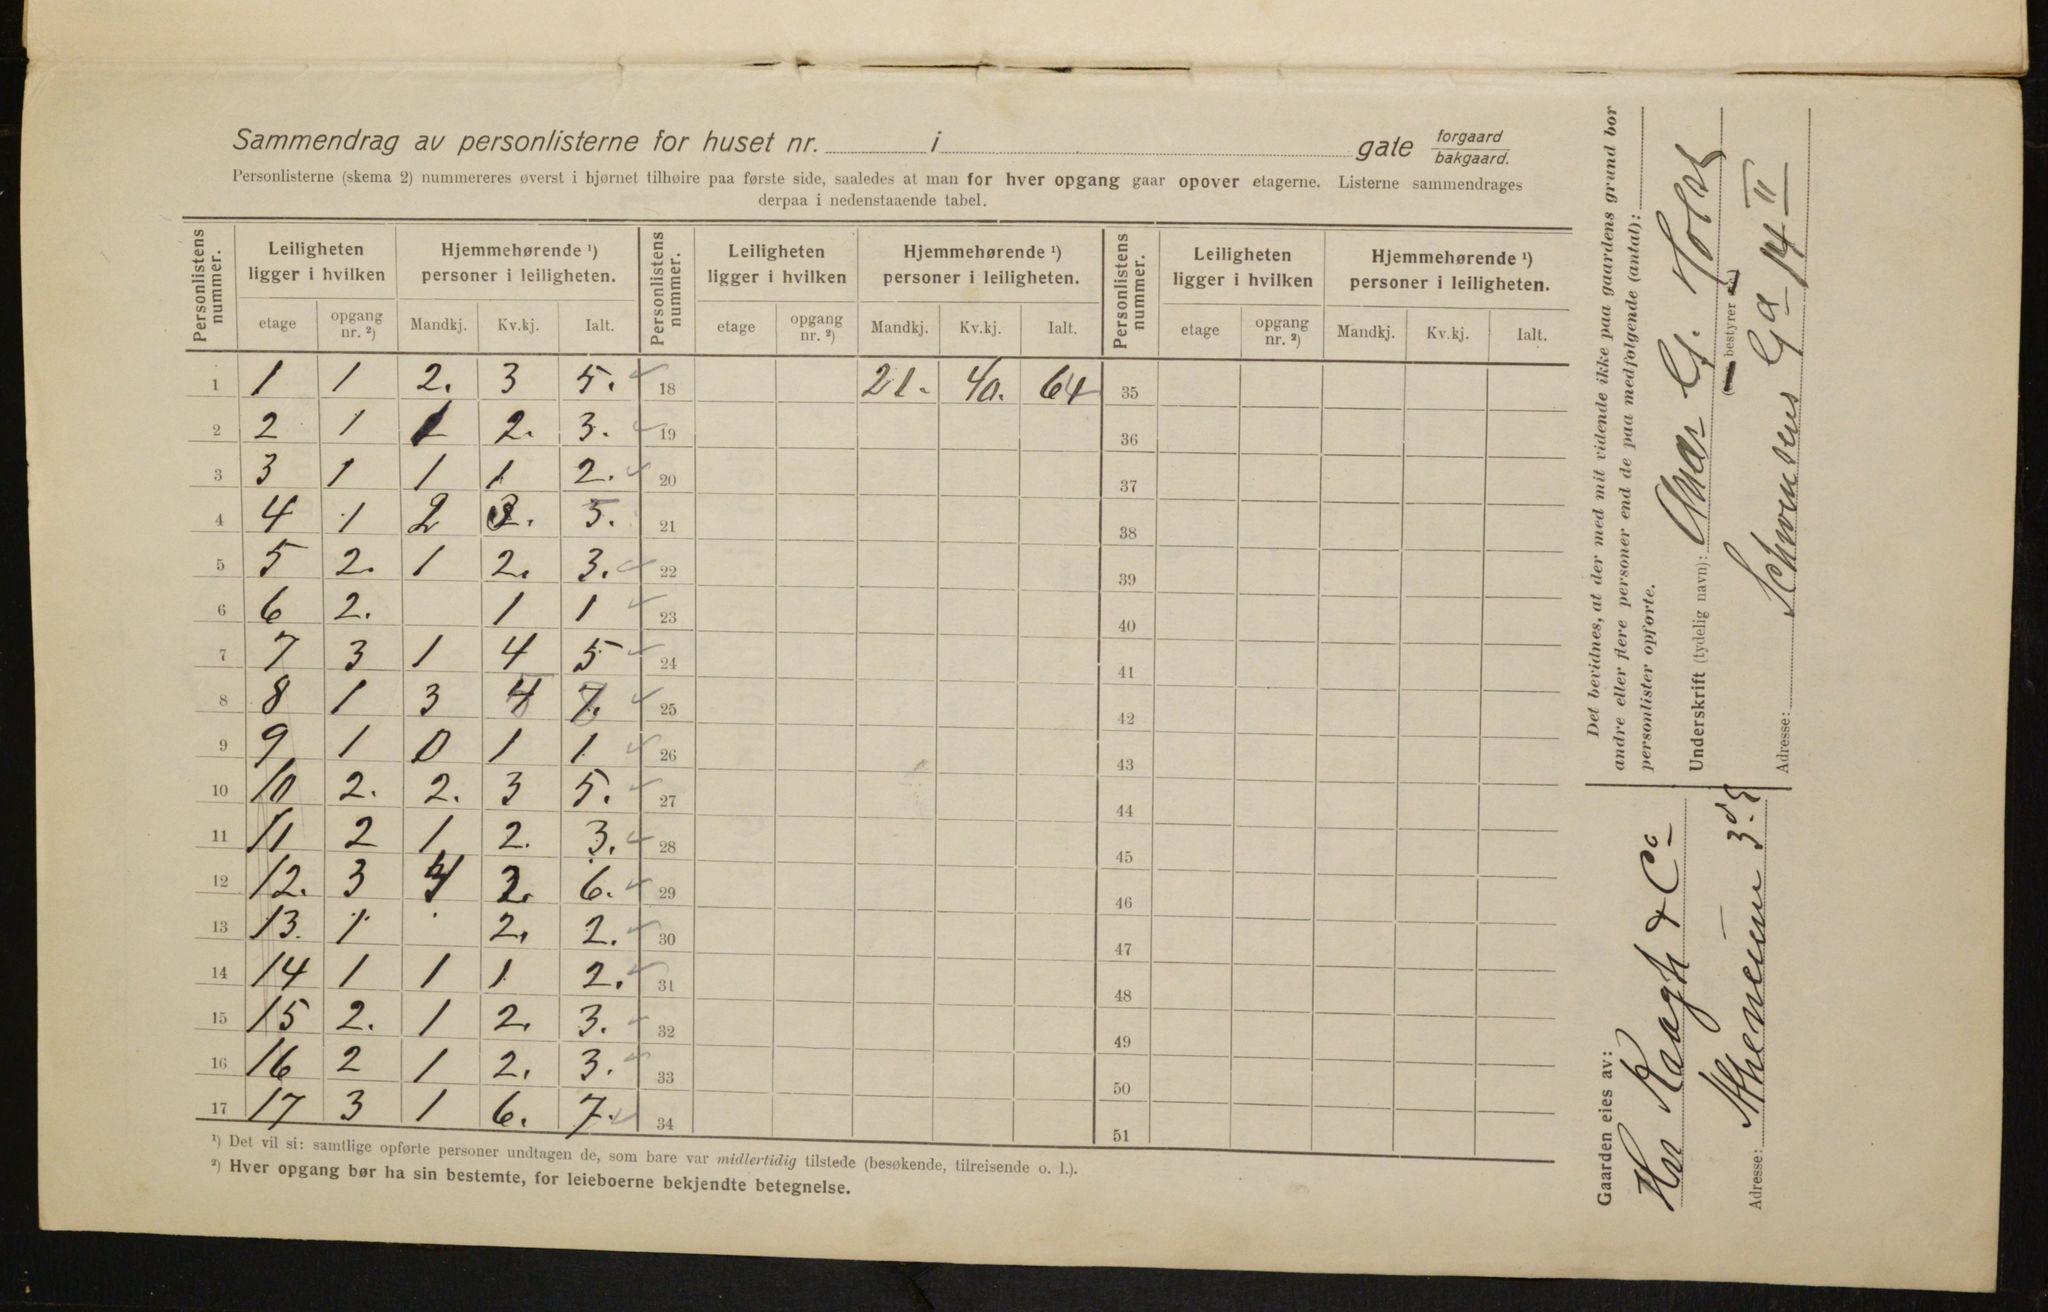 Sammendrag av personlisterne for huset nr. i gate forgaard bakgaard.
Personlisterne (skema 2) nummereres øverst i hjørnet tilhøire paa første side, saaledes at man for hver opgang gaar opover etagerne. Listerne sammendrages
derpaa i nedenstaaende tabel.
Personlistens nummer. Leiligheten ligger i hvilken Hjemmehørende ¹) personer i leiligheten. Personlistens nummer. Leiligheten ligger i hvilken Hjemmehørende ¹) personer i leiligheten. Personlistens nummer. Leiligheten ligger i hvilken Hjemmehørende ¹) personer i leiligheten.
etage opgang nr. ²) Mandkj. Kv.kj. Ialt. etage opgang nr. ²) Mandkj. Kv.kj. Ialt. etage opgang nr. ²) Mandkj. Kv.kj. Ialt.
1 1 1 2. 3 5. 18 40. 64 35
2 2 1 1 2. 3. 19 36
3 3 1 1 1 2. 20 37
4 4 1 2 5. 21 38
5 5 2. 1 2. 3. 22 39
6 6 2. 1 1 23 40
7 7 3 1 4 5 24 41
8 8 1 3 4 7. 25 42
9 9 1 0 1 1. 26 43
10 10 2. 2. 3 5. 27 44
11 11 2 1 2. 3. 28 45
12 12. 3 4 2. 6. 29 46
13 13. 1 2. 2. 30 47
14 14 1 1 1 2. 31 48
15 15 2. 1 2. 3. 32 49
16 16 2 1 2. 3. 33 50
17 17 3 1 6. 7. 34 51
¹) Det vil si: samtlige opførte personer undtagen de, som bare var midlertidig tilstede (besøkende, tilreisende o. l.).
²) Hver opgang bør ha sin bestemte, for leieboerne bekjendte betegnelse.
Det bevidnes, at der med mit vidende ikke paa gaardens grund bor
andre eller flere personer end de paa medfølgende (antal):
personlister opførte.
Underskrift (tydelig navn): Holst
bestyrer
Adresse: Schwensens Ga 14 II
Gaarden eies av:
Kragh & Co
Adresse: